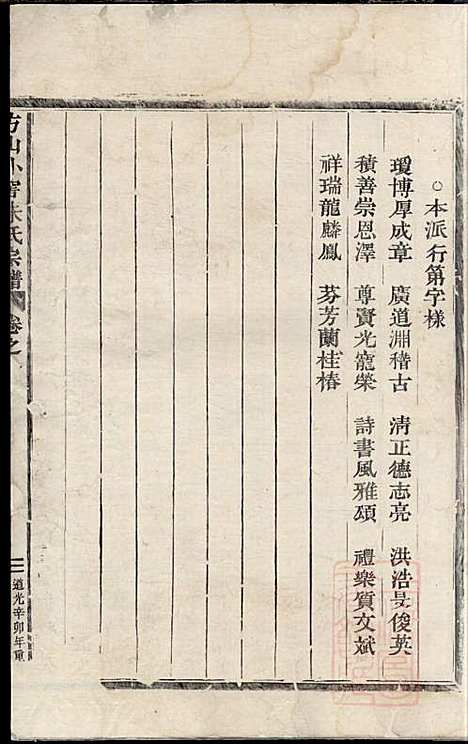 ○本派行第字樣
瓊博厚成章 廣道淵稽古 清正德志亮 洪浩旻俊英
積善崇恩澤 尊賢光寵榮 詩書風雅頌 禮樂質文斌
祥瑞龍麟鳳 芬芳蘭桂椿
朱氏宗譜 卷之
二 道光辛卯年重